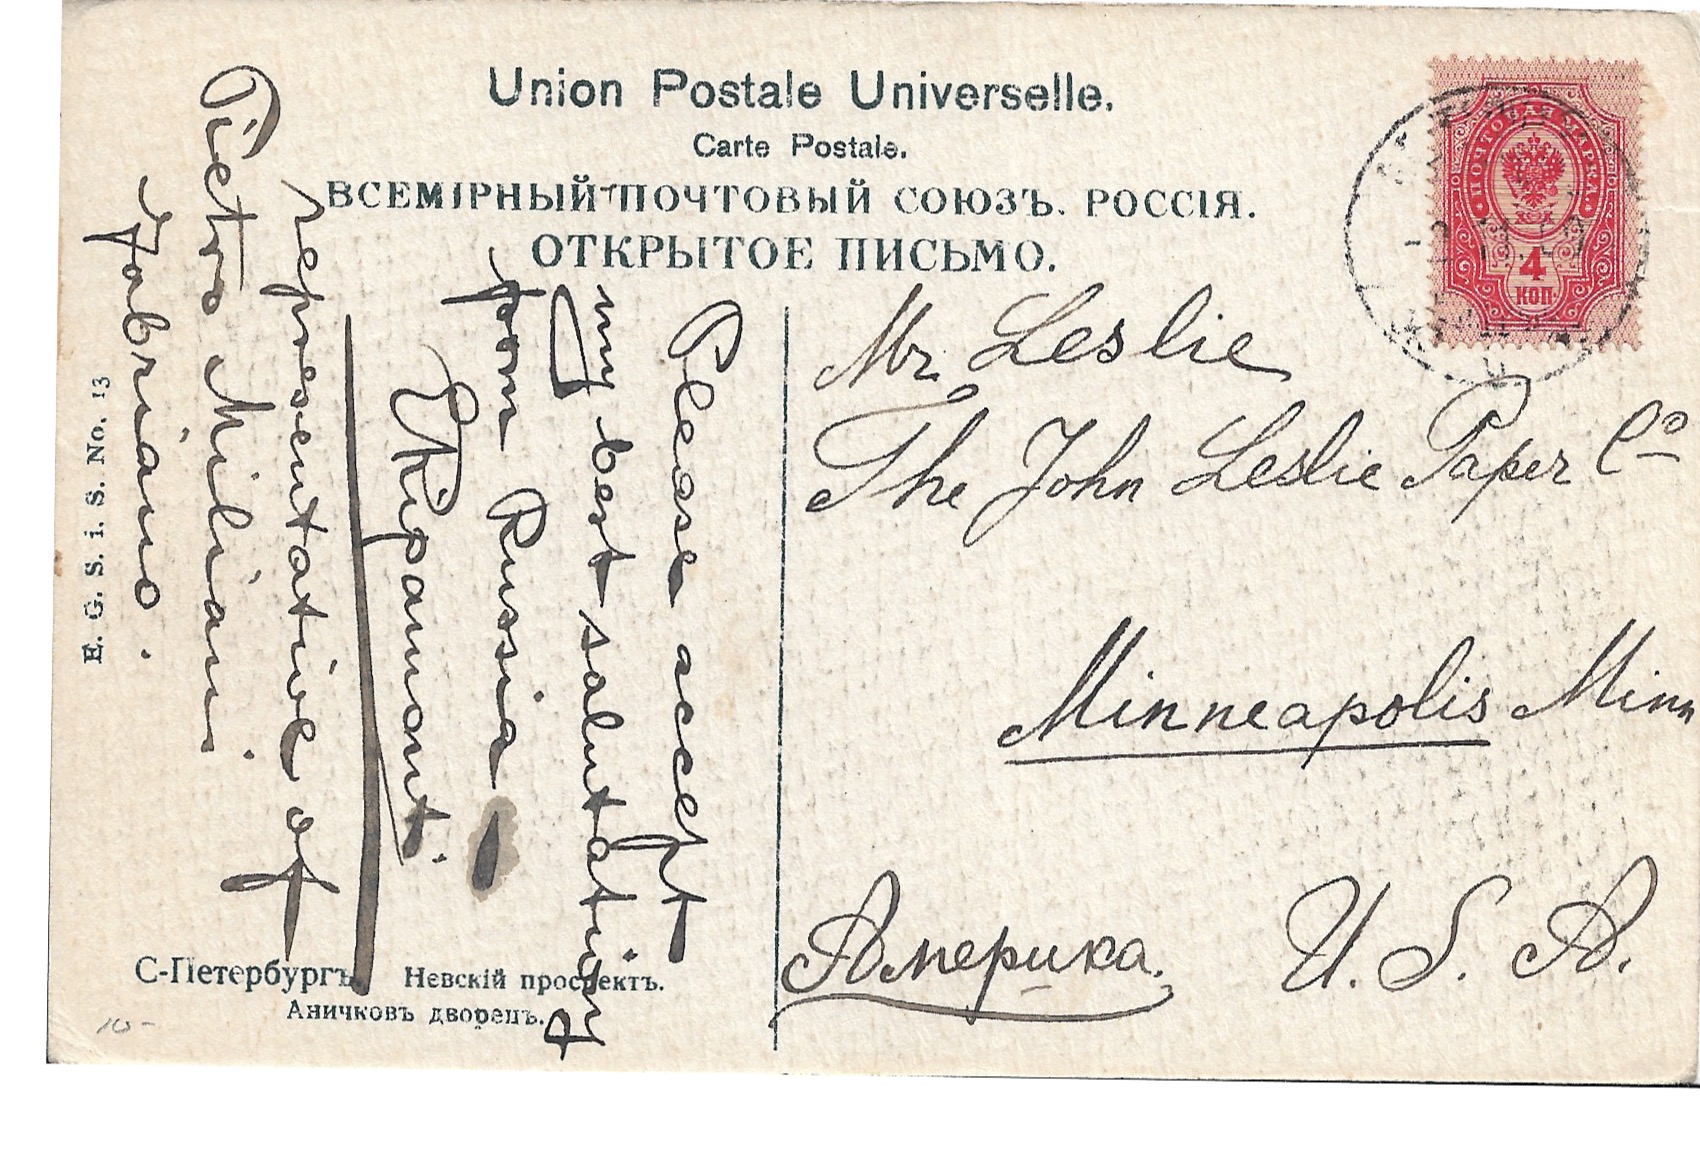 Union Postale Universelle.
Carte Postale.
ВСЕМІРНЫЙ ПОЧТОВЫЙ СОЮЗЪ. РОССІЯ.
ОТКРЫТОЕ ПИСЬМО.
ПОЧТОВАЯ МАРКА
4
КОП.
Mr. Leslie
The John Leslie Paper Co
Minneapolis Minn
Америка. U. S. A.
Please accept
my best salutations
from Russia
representative of
Pietro Miliani
Fabriano.
E. G. S. i. S. No. 13
С-Петербургъ. Невскій проспектъ.
Аничковъ дворецъ.
10-